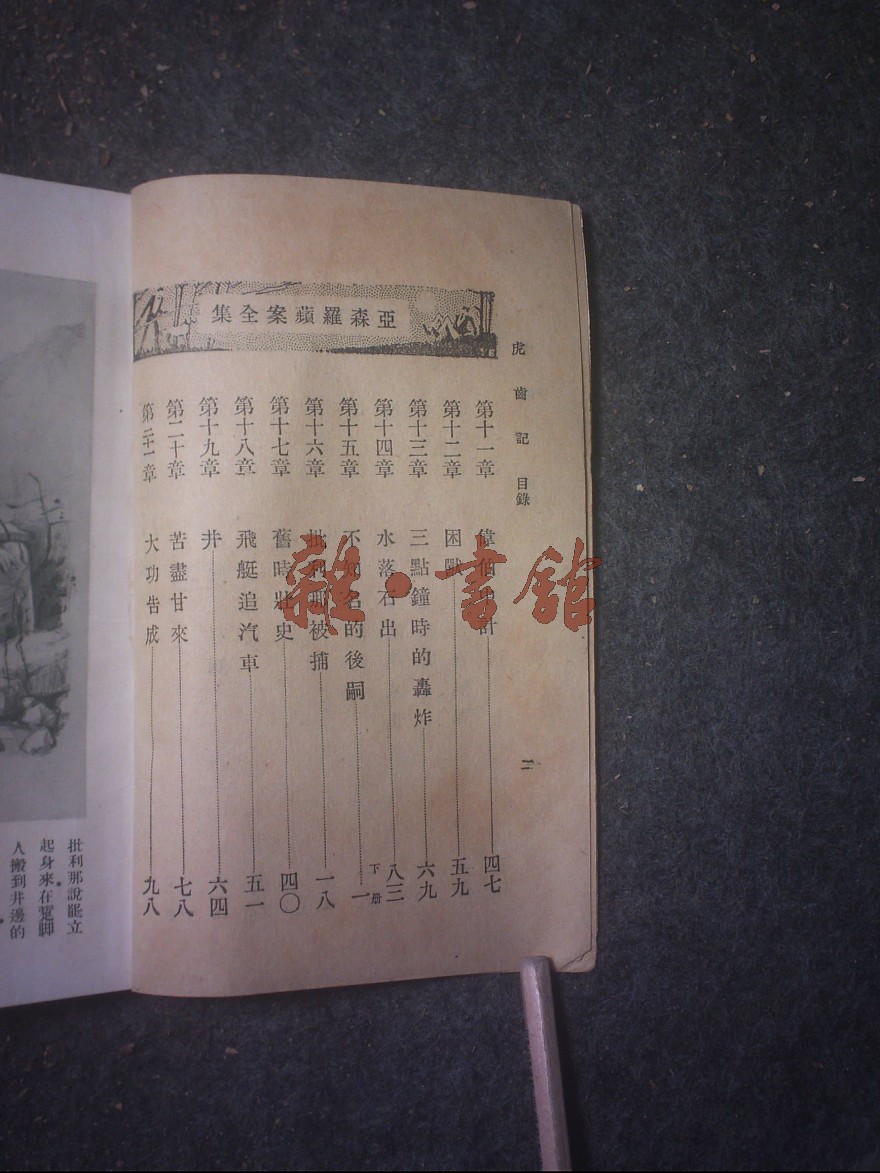 亞森羅蘋案全集
虎齒記 目錄
二
第十一章 偉伯 計 四七
第十二章 困獸 五九
第十三章 三點鐘時的轟炸 六九
第十四章 水落石出 八三
下册
第十五章 不知名的後嗣 一
第十六章 批利那被捕 一八
第十七章 舊時壯史 四〇
第十八章 飛艇追汽車 五一
第十九章 井 六四
第二十章 苦盡甘來 七八
第二十一章 大功告成 九八
批利那說罷立
起身來在躄脚
人搬到井邊的
雜·書館